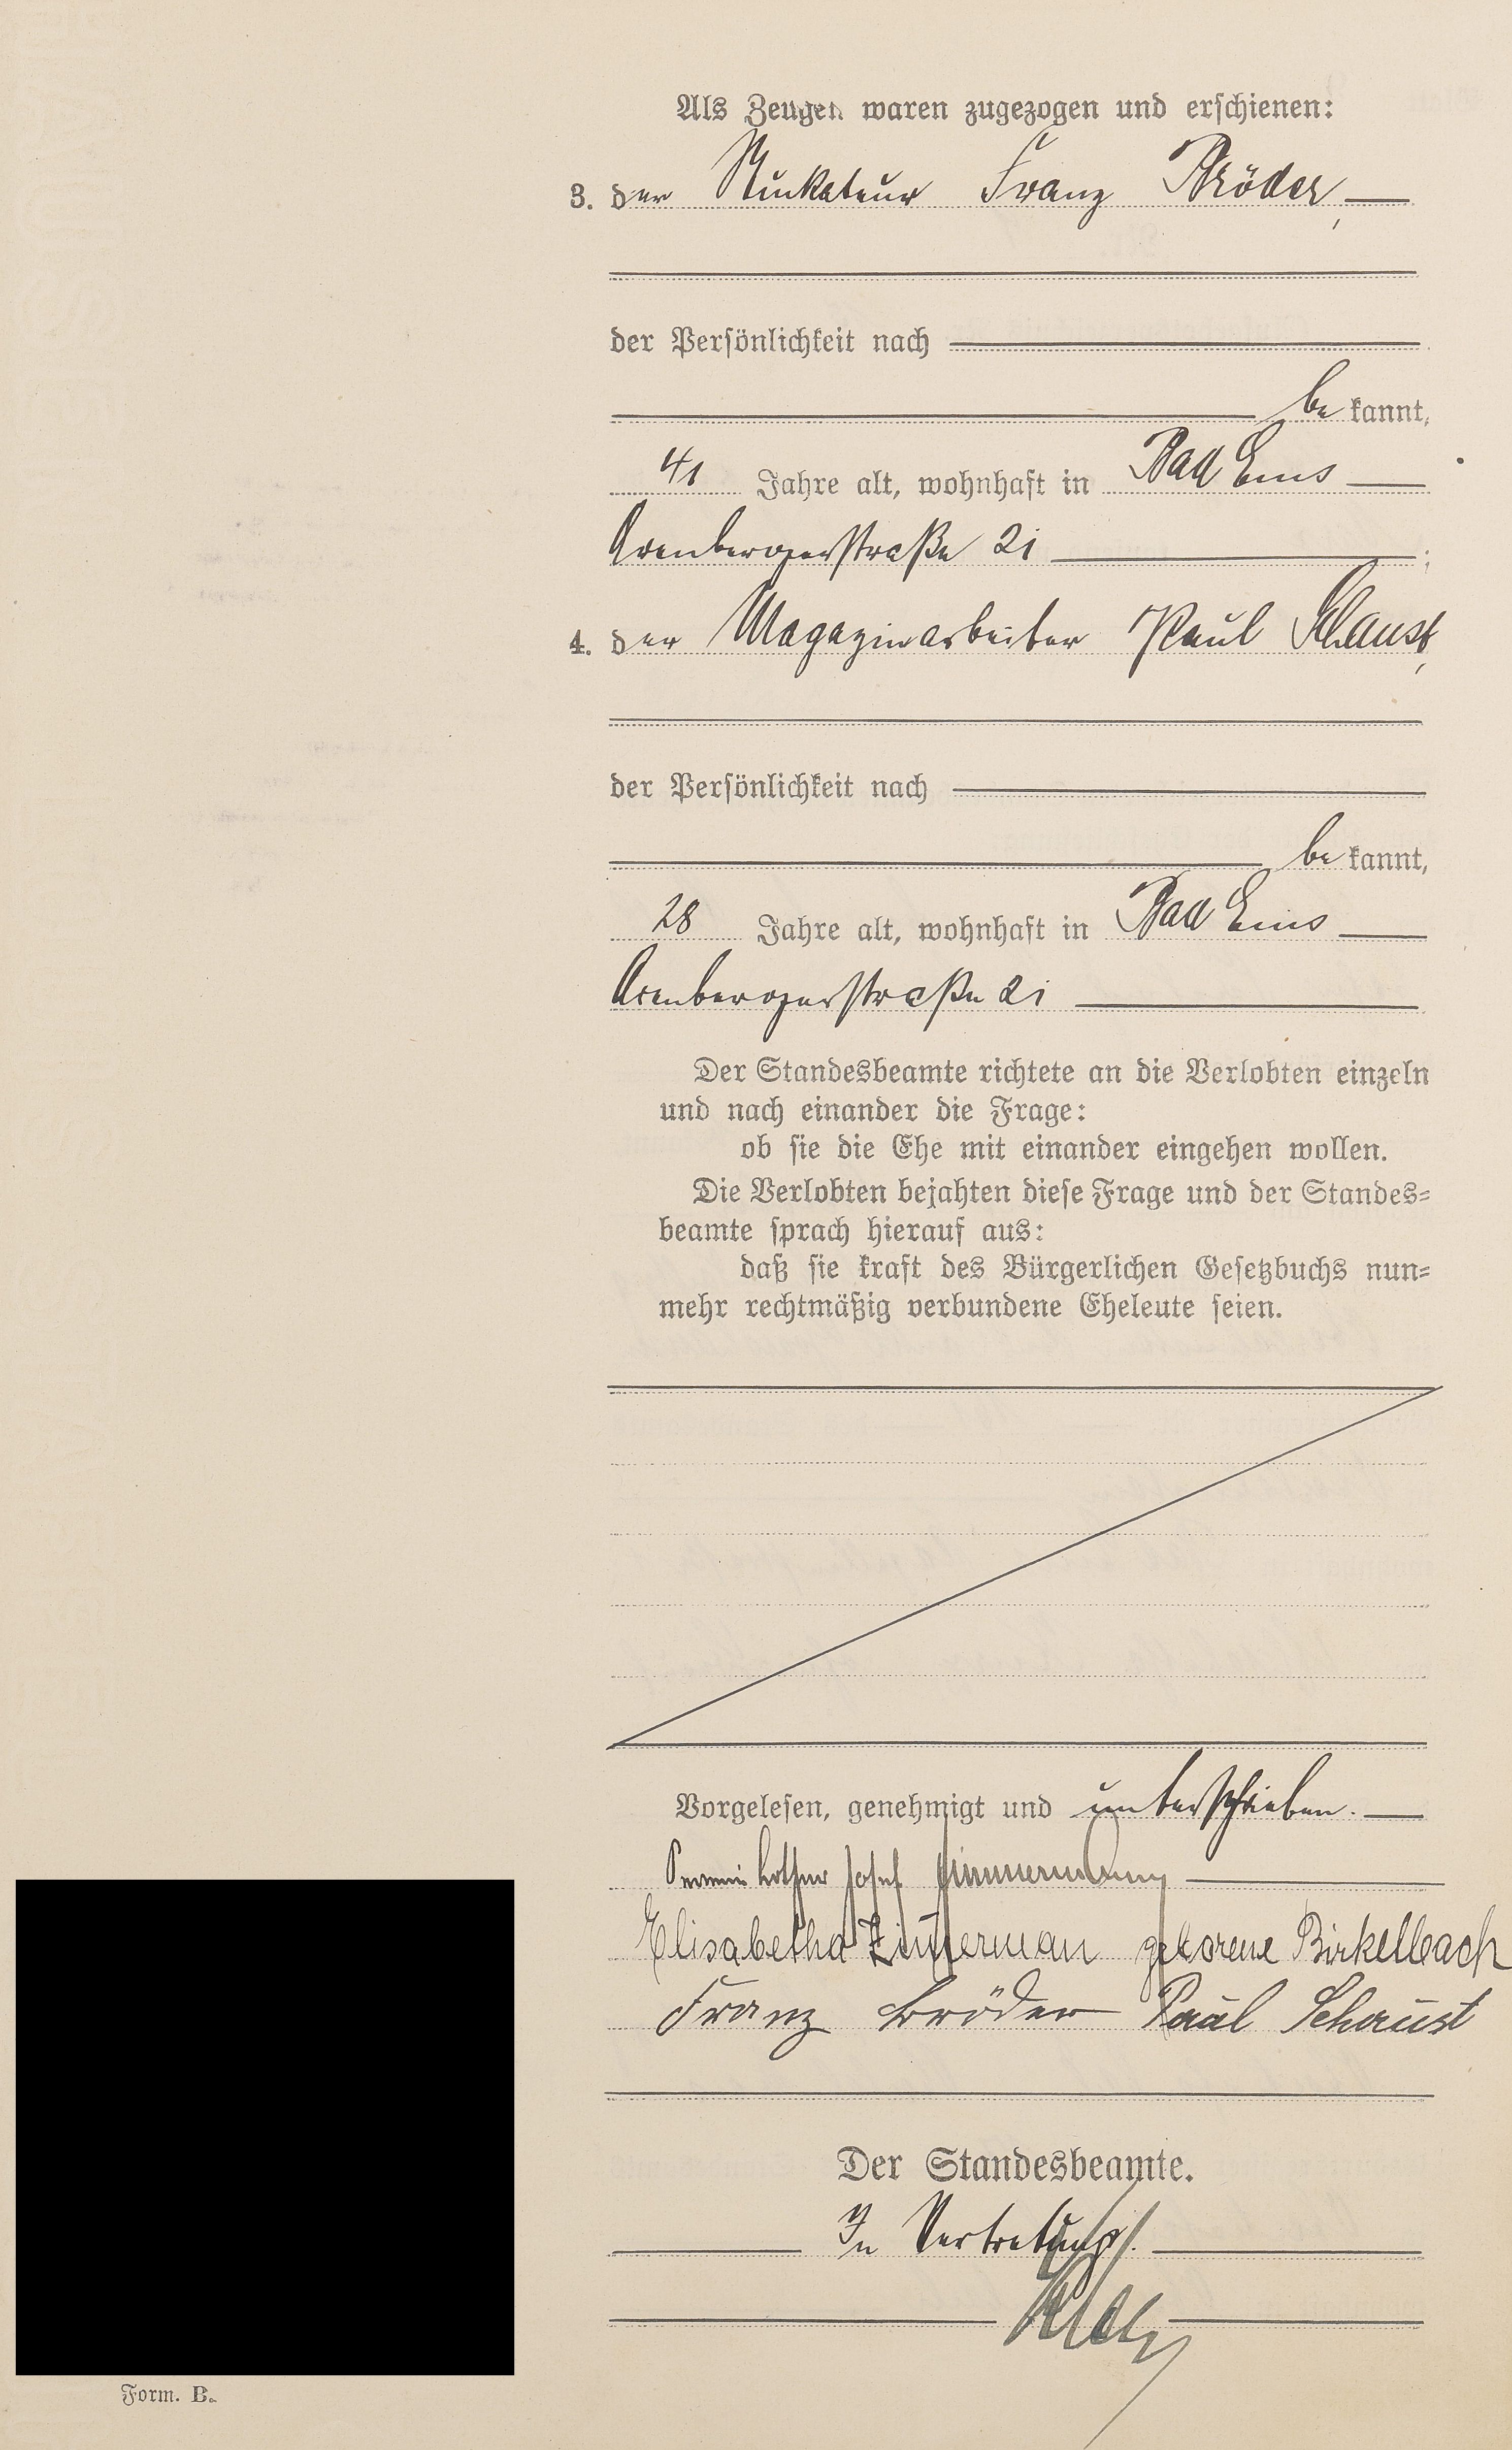 Als Zeugen waren zugezogen und erschienen:
3. der Stuckateur Franz Bröder,
der Persönlichkeit nach
be kannt,
41 Jahre alt, wohnhaft in Bad Ems
Arenbergerstraße 21 ;
4. der Magazinarbeiter Paul Schaust,
der Persönlichkeit nach
be kannt,
28 Jahre alt, wohnhaft in Bad Ems
Arenbergerstraße 21
Der Standesbeamte richtete an die Verlobten einzeln
und nach einander die Frage:
ob sie die Ehe mit einander eingehen wollen.
Die Verlobten bejahten diese Frage und der Standes-
beamte sprach hierauf aus:
daß sie kraft des Bürgerlichen Gesetzbuchs nun-
mehr rechtmäßig verbundene Eheleute seien.
Vorgelesen, genehmigt und unterschrieben.
Josef Zimmermann
Elisabetha Zimmerman geborene Birkelbach
Franz Bröder Paul Schaust
Der Standesbeamte.
In Vertretung.
Form. B.